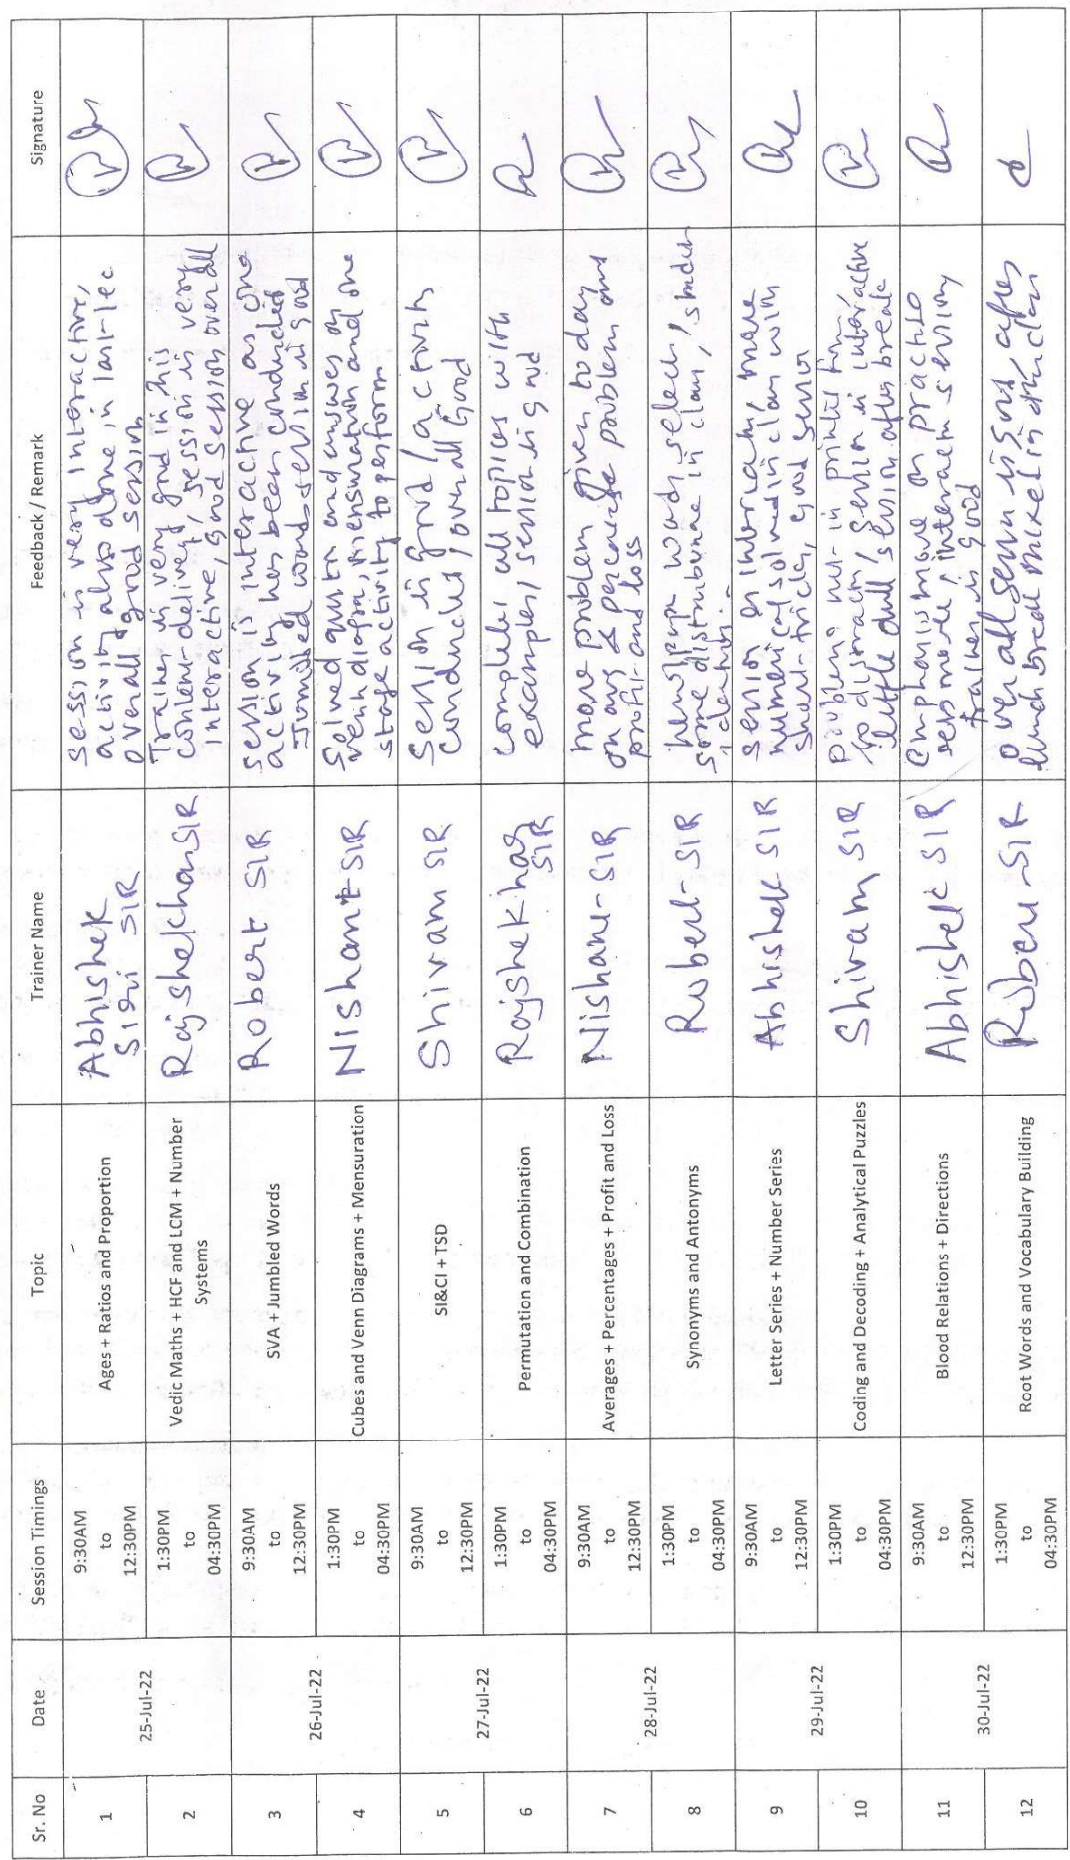 Sr. No Date Session Timings Topic Trainer Name Feedback / Remark Signature
1
25-Jul-22
9:30AM
to
12:30PM
Ages + Ratios and Proportion
Abhishek
SIR
session is very interactive,
activity also done, in last lec
overall good session
2
1:30PM
to
04:30PM
Vedic Maths + HCF and LCM + Number
Systems
Rajshekhar SIR
Trainer is very good in his
content-delivery, session is very
interactive, good session overall
3
26-Jul-22
9:30AM
to
12:30PM
SVA + Jumbled Words
Robert SIR
session is interactive as one
activity has been conducted
Jumbled words session is good
4
1:30PM
to
04:30PM
Cubes and Venn Diagrams + Mensuration
Nishant SIR
Solved and answers on
mensuration and one
stage activity to perform
5
27-Jul-22
9:30AM
to
12:30PM
SI&CI + TSD
Shivam SIR
Session is good, activity
conducted, overall good
6
1:30PM
to
04:30PM
Permutation and Combination
Rajshekhar
SIR
complete all topices with
examples, session is good
7
28-Jul-22
9:30AM
to
12:30PM
Averages + Percentages + Profit and Loss
Nishant-SIR
more problem given today
on avg & problem and
profit and loss
8
1:30PM
to
04:30PM
Synonyms and Antonyms
Robert-SIR
words
some in class,
9
29-Jul-22
9:30AM
to
12:30PM
Letter Series + Number Series
Abhishek SIR
session is more
numerical solved in class with
short-tricks, good session
10
1:30PM
to
04:30PM
Coding and Decoding + Analytical Puzzles
Shivam SIR
problem in
session is interactive
little dull session after break
11
30-Jul-22
9:30AM
to
12:30PM
Blood Relations + Directions
Abhishek SIR
Emphasis more on
interaction
is good
12
1:30PM
to
04:30PM
Root Words and Vocabulary Building
Robert-SIR
over all session is good, after
lunch break